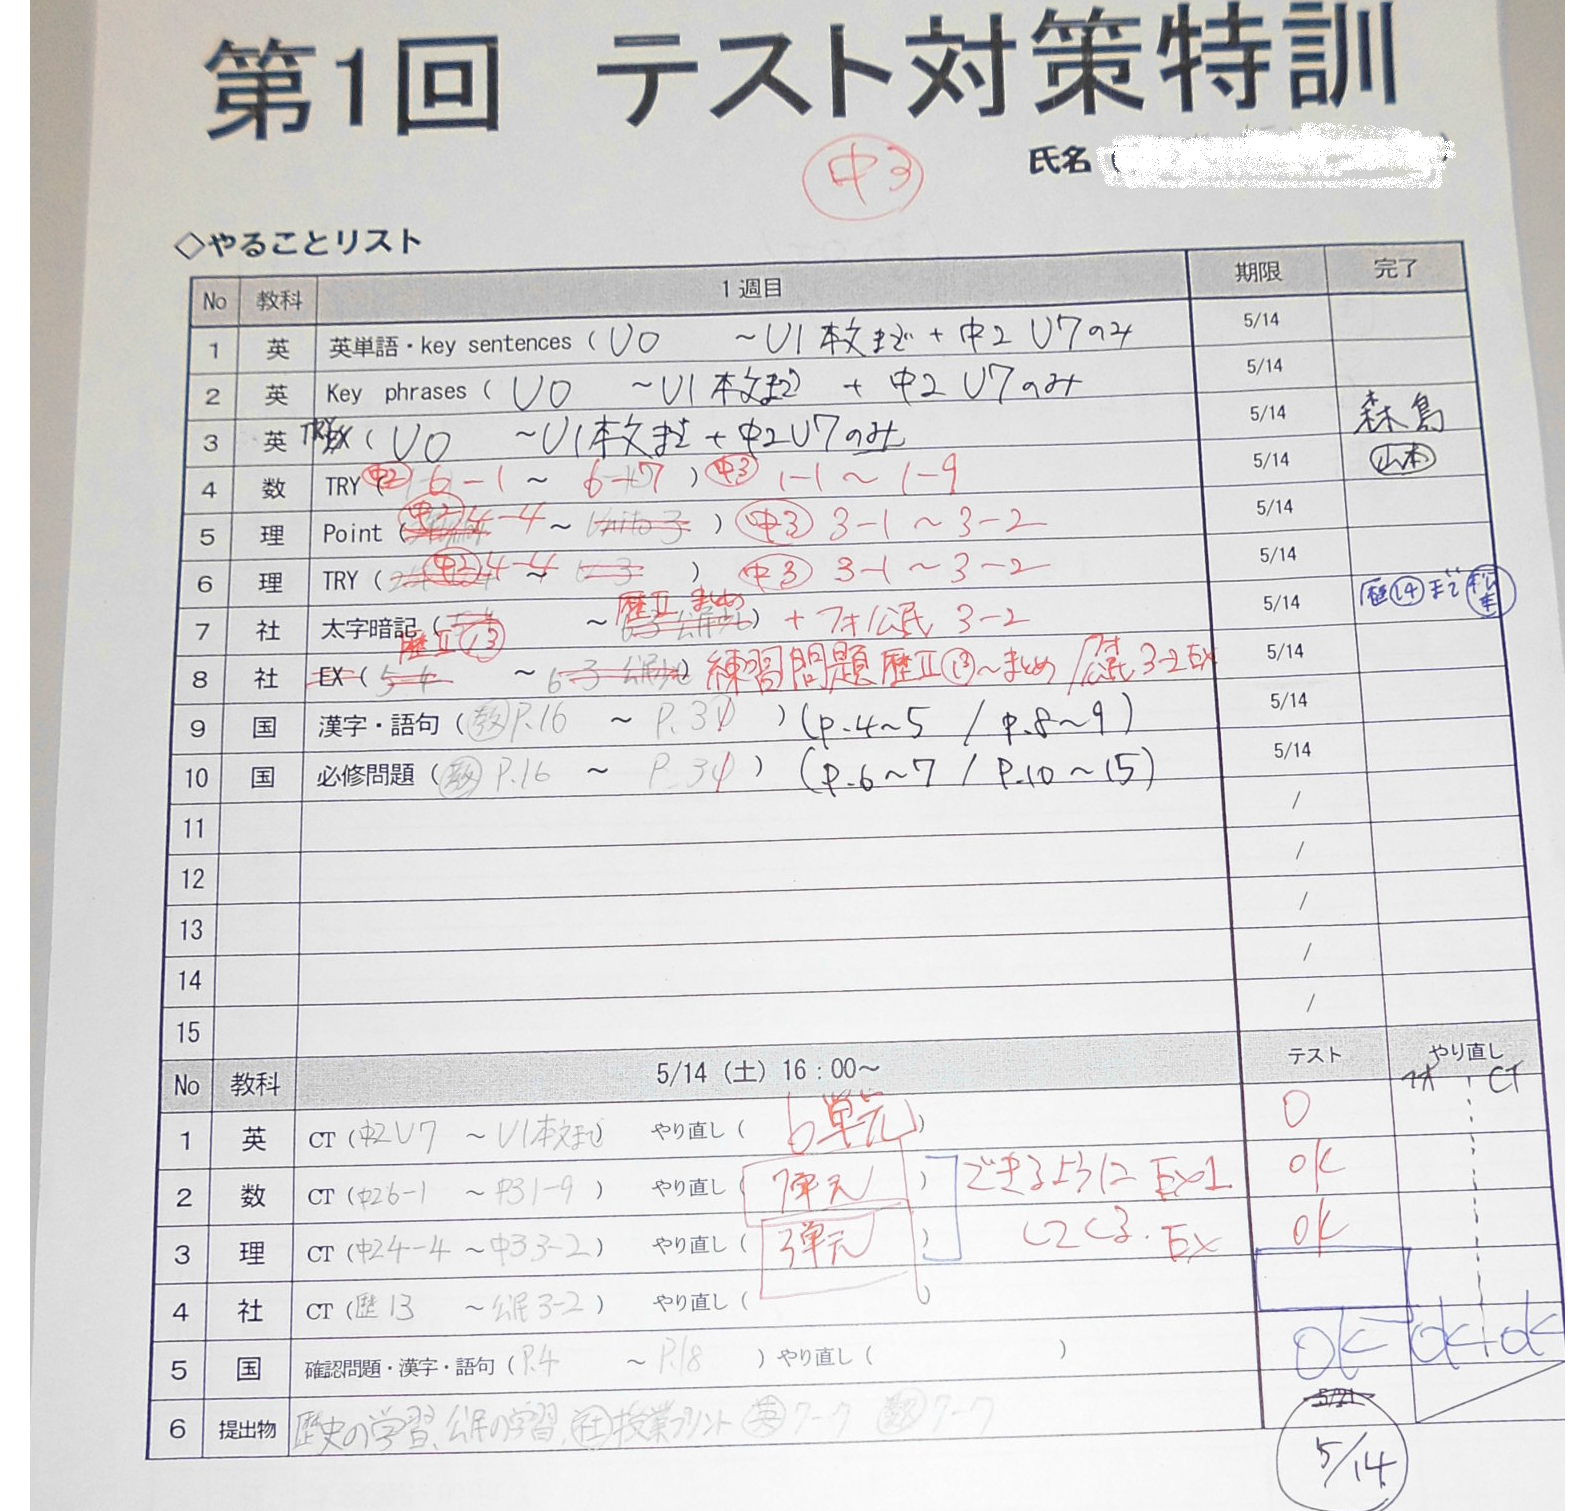 第1回 テスト対策特訓
中3
氏名(
◇やることリスト
No 教科 1週目 期限 完了
1 英 英単語・key sentences ( U0 ~U1本文まで + 中2 U7のみ 5/14
2 英 Key phrases ( U0 ~U1本文まで + 中2 U7のみ 5/14
3 英 TRY EX ( U0 ~U1本文まで + 中2U7のみ 5/14 森島
4 数 TRY ( 中2 6-1 ~ 6-7 ) 中3 1-1 ~ 1-9 5/14 山本
5 理 Point ( 中2 4-4 ~ ) 中3 3-1 ~ 3-2 5/14
6 理 TRY ( 中2 4-4 ~ ) 中3 3-1 ~ 3-2 5/14
7 社 太字暗記 ( 歴Ⅱ⑬ ~ 歴Ⅱ まとめ ) + フォ/公民 3-2 5/14 歴⑭まで
8 社 EX ( 5-4 ~ 6-3 ) 練習問題 歴Ⅱ⑬~まとめ / フォ公民 3-2 EX 5/14
9 国 漢字・語句 ( 教 P.16 ~ P.31 ) (P.4~5 / P.8~9) 5/14
10 国 必修問題 ( 教 P.16 ~ P.31 ) (P.6~7 / P.10~15) 5/14
11 /
12 /
13 /
14 /
15 /
No 教科 5/14 (土) 16:00~ テスト やり直し
フォ CT
1 英 CT (中2U7 ~ U1本文まで やり直し ( 6単元 ) O
2 数 CT (中26-1 ~ 中31-9 ) やり直し ( 7単元 ) できるように Ex1 OK
3 理 CT (中24-4 ~ 中33-2 ) やり直し ( 3単元 ) してくる. Ex OK
4 社 CT (歴13 ~ 公民3-2 ) やり直し ( )
5 国 確認問題・漢字・語句 ( P.4 ~ P.18 ) やり直し ( ) OK OK OK
6 提出物 歴史の学習、公民の学習、社授業プリント 英ワーク 数ワーク 5/21
5/14